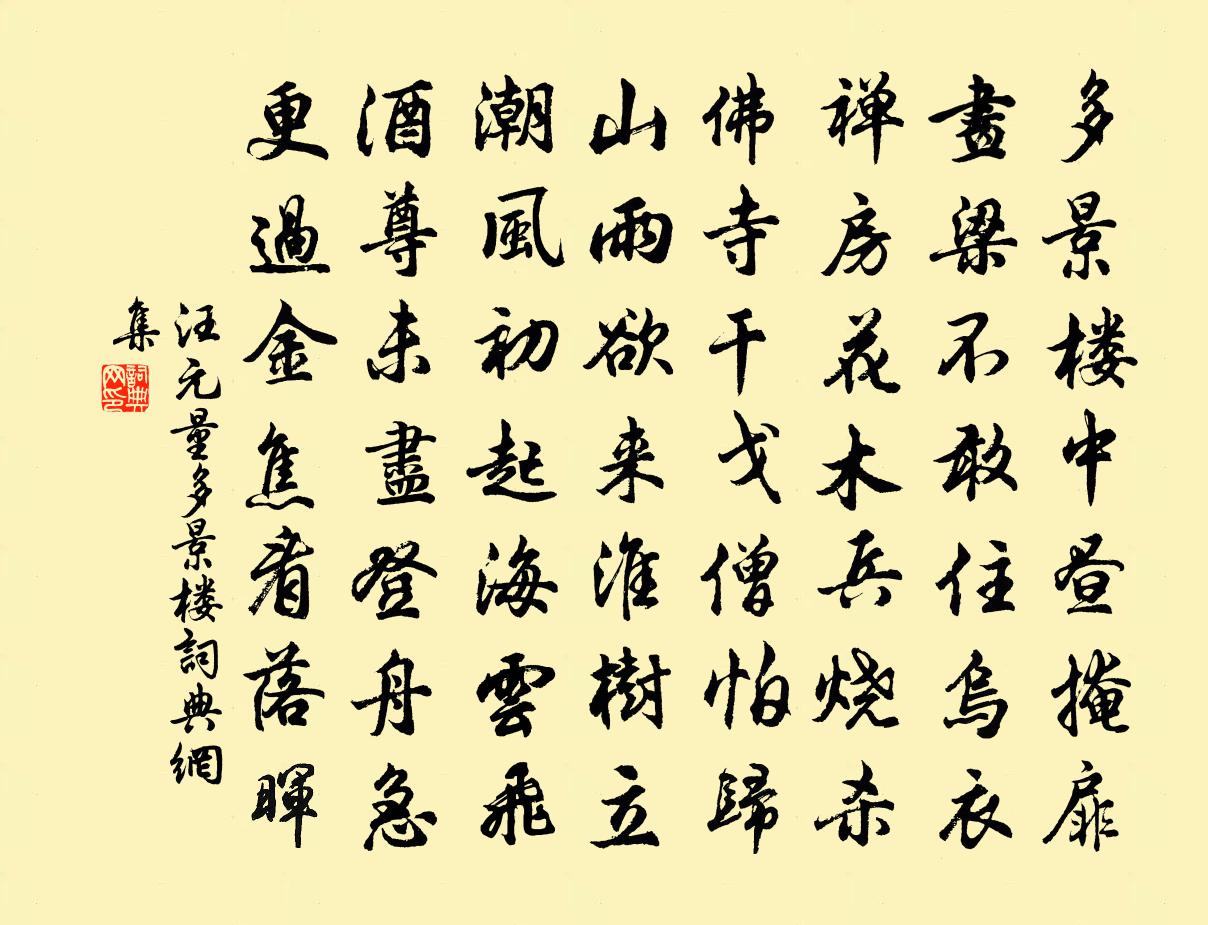 多景楼中昼掩扉
畫梁不敢住烏衣
禅房花木兵烧杀
佛寺干戈僧怕歸
山雨欲来淮樹立
潮風初起海雲飛
酒尊未盡登舟急
更過金焦看落暉
汪元量多景楼詞典網
集
詞典
网印